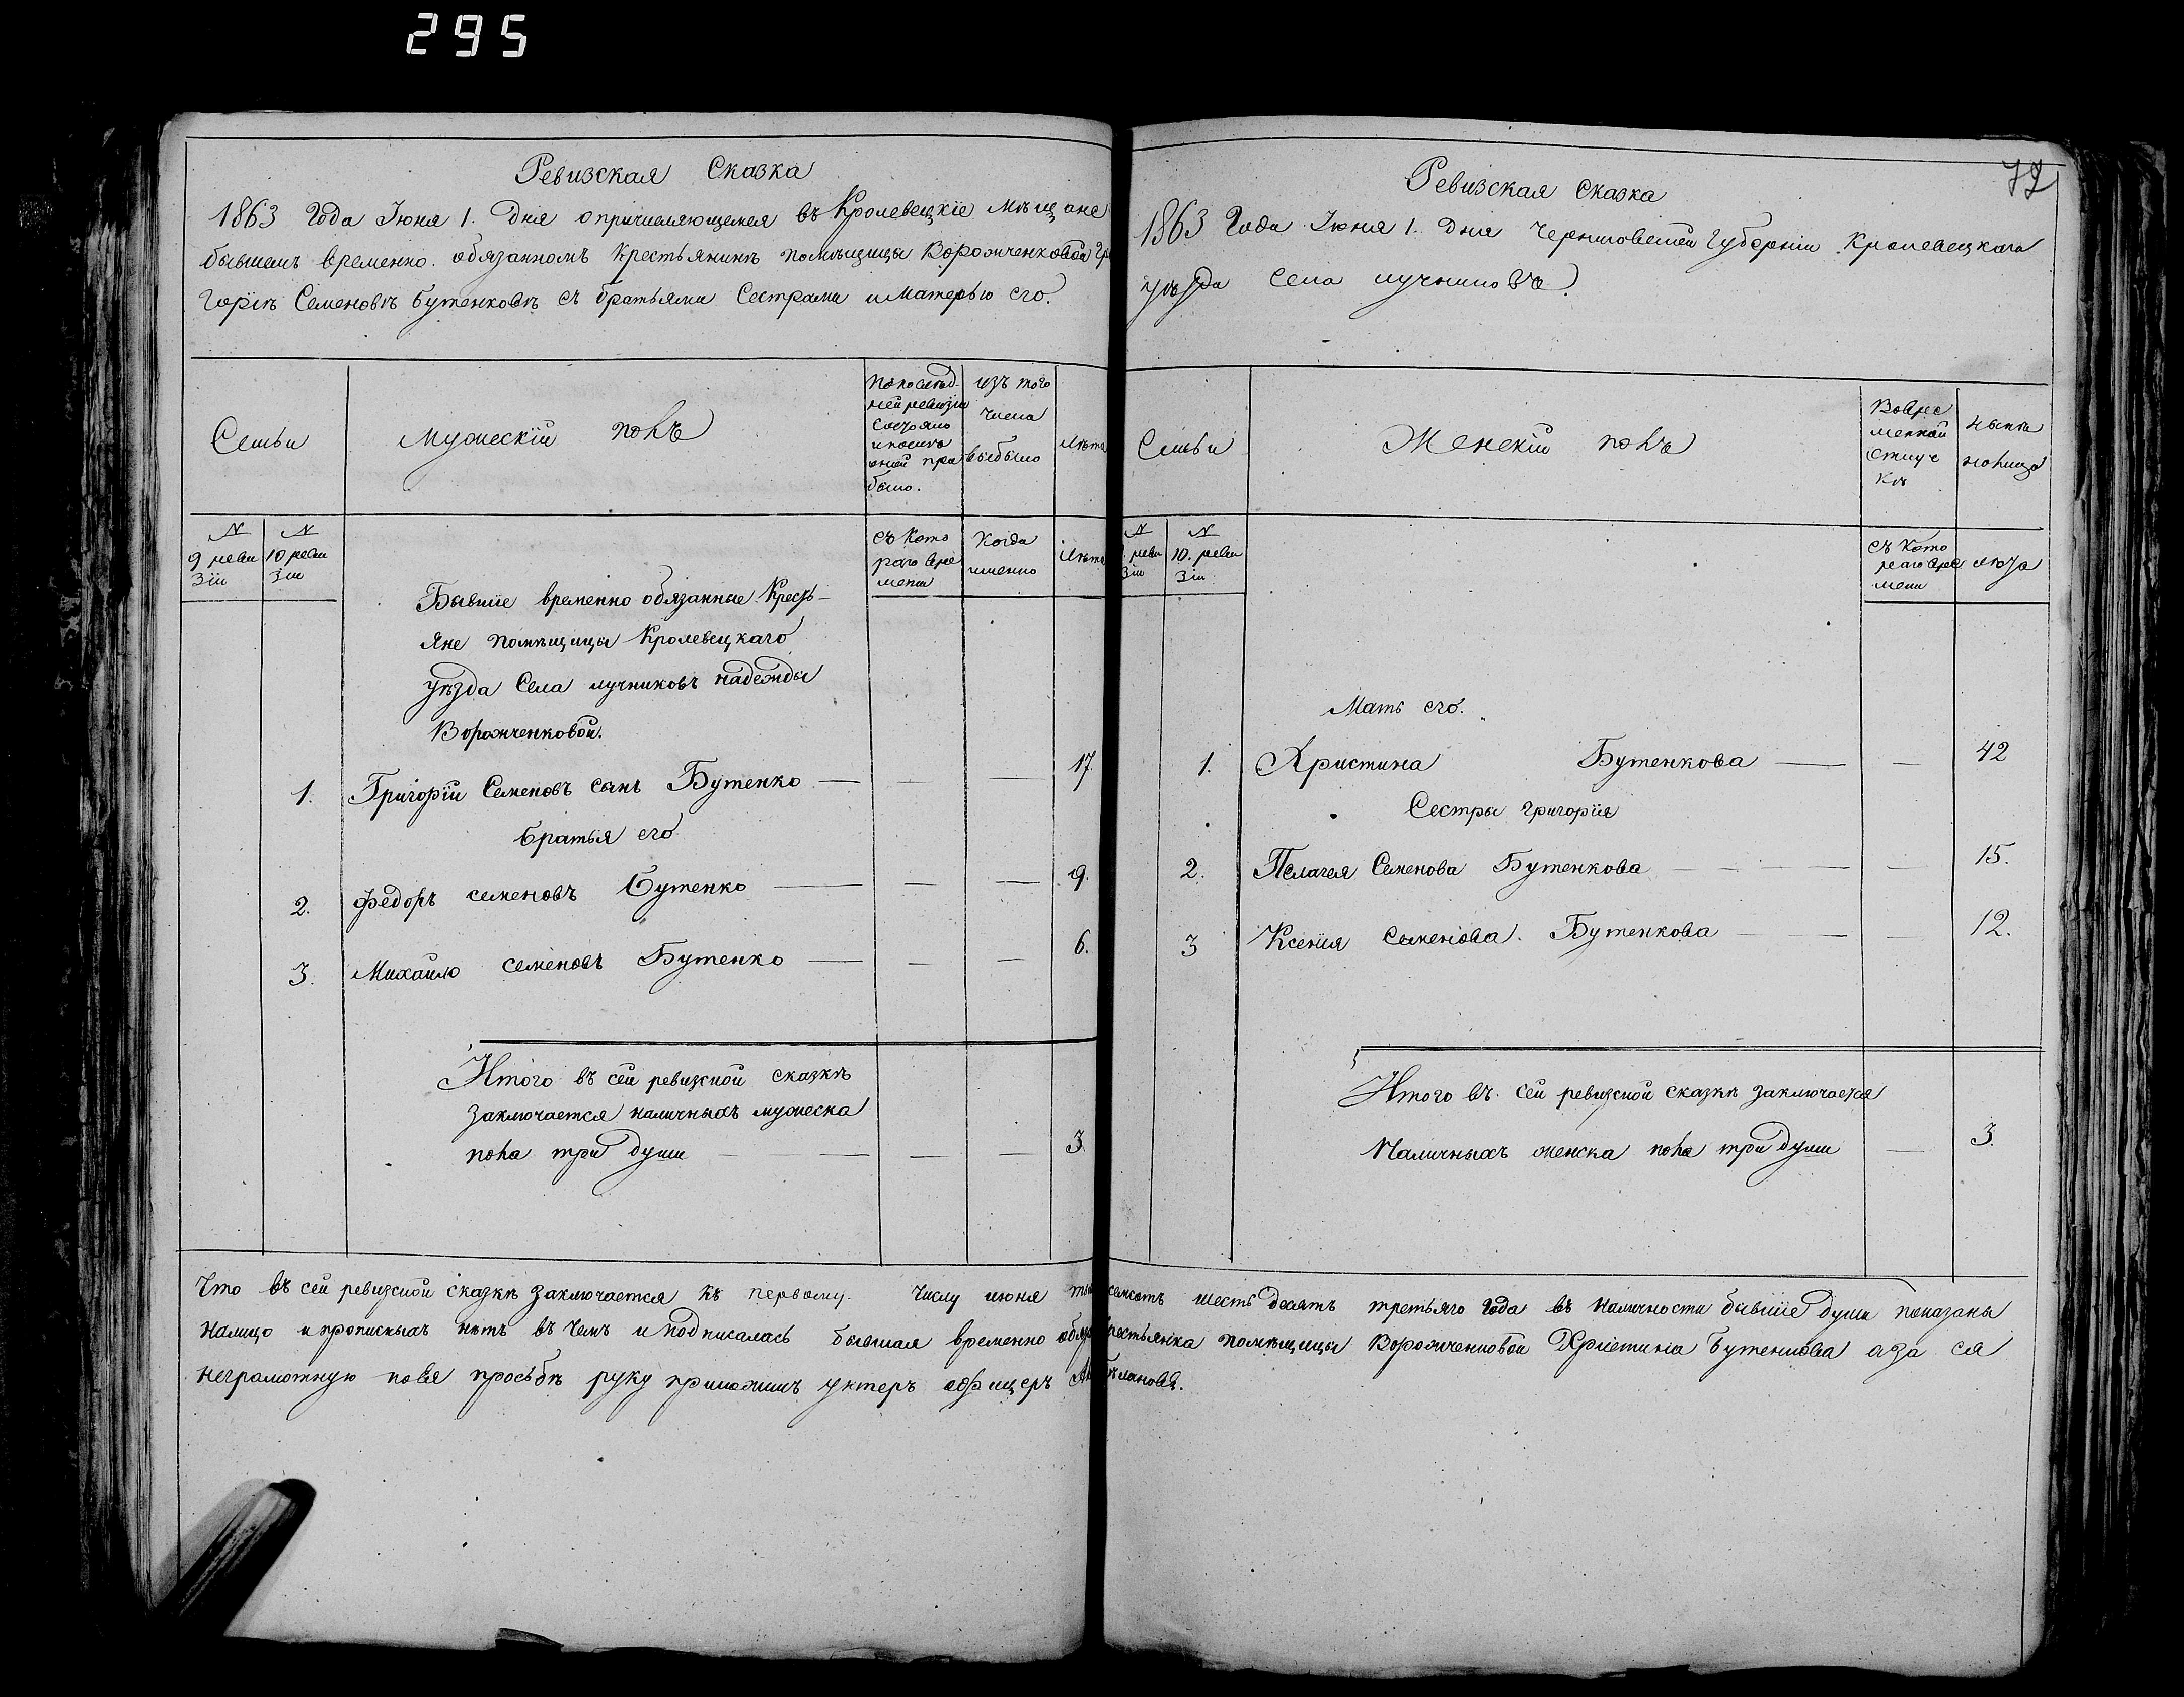 295
Ревизская Сказка
1863 Года Июня 1. Дня опричисляющемся въ Кролевецкіе Мѣщане
бывшемъ временно обязанномъ Крестьянинѣ помѣщицы Ворожченковой Гри
горіѣ Семеновѣ Бутенковѣ съ братьями Сестрами и Матерью его.
Семьи
Мужескій полъ
По послѣд-
ней ревизіи
состояло
и послѣ
оной при
было.
изъ того
числа
выбыло
Лѣта
№
9 реви
зіи
№
10 реви
зіи
съ кото
раго вре
мени
Когда
именно
Лѣта
Бывшіе временно обязанные Кресть-
яне помѣщицы Кролевецкаго
уѣзда Села лучниковъ надежды
Ворожченковой.
1. Григорій Семеновъ сынъ Бутенко — — — 17.
братья его
2. Федоръ семеновъ Бутенко — — — 9.
3. Михайло семеновъ Бутенко — — — 6.
Итого въ сей ревизской сказкѣ
заключается наличныхъ мужеска
пола три души — — — — 3.
77
Ревизская сказка
1863 Года Июня 1. дня Черниговской Губерніи Кролевецкаго
уѣзда села лучниковъ
Семьи
Женскій полъ
Вовре
менной
отлуч
кѣ
Нынѣ
на лицо
№
9. реви
зіи
№
10. реви
зіи
съ кото
раго вре
мени
лѣта
Мать его.
1. Христина Бутенкова — — 42
Сестры григорія
2. Пелагея Семенова Бутенкова — — — 15.
3 Ксенія Семенова. Бутенкова — — — 12.
Итого въ сей ревизской сказкѣ заключается
Наличныхъ женска пола три души — 3.
Что въ сей ревизской сказкѣ заключается къ первому. числу июня семсотъ шесть десятъ третьяго года въ наличности бывшіе души показаны
налицо и прописныхъ нѣтъ въ чемъ и подписалась бывшая временно обяз крестьянка помѣщицы Ворожченковой Христина Бутенкова а за ея
неграмотную по ея просьбѣ руку приложилъ унтеръ офицеръ